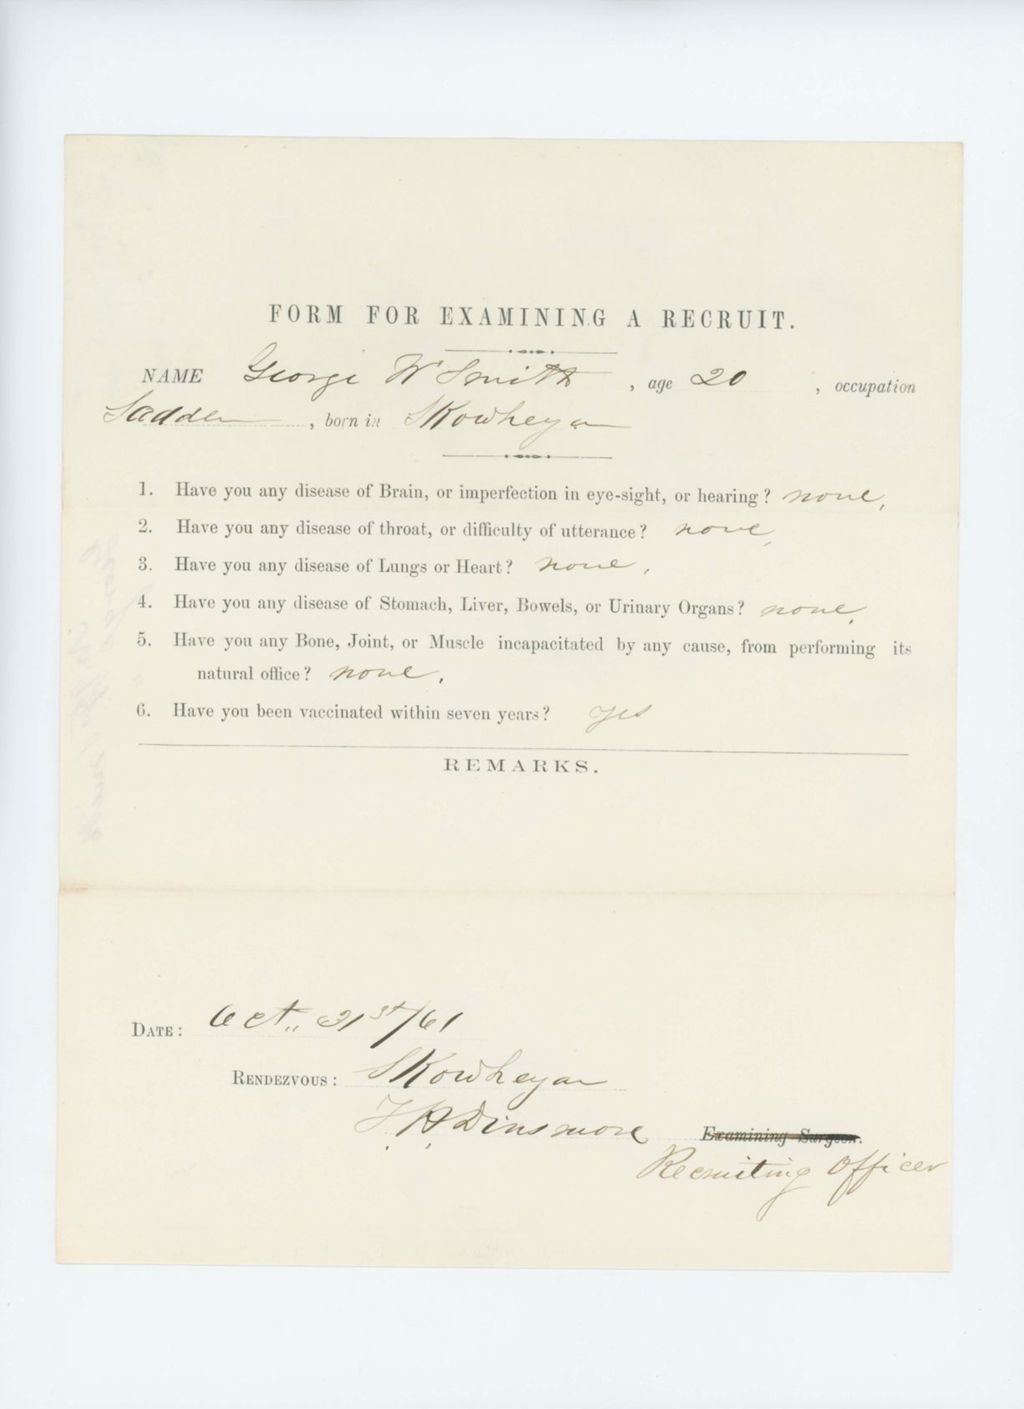 FORM FOR EXAMINING A RECRUIT.
NAME George W Smith , age 20 , occupation
Sadden , born in Skowhegan
1. Have you any disease of Brain, or imperfection in eye-sight, or hearing? none,
2. Have you any disease of throat, or difficulty of utterance? none,
3. Have you any disease of Lungs or Heart? none,
4. Have you any disease of Stomach, Liver, Bowels, or Urinary Organs? none,
5. Have you any Bone, Joint, or Muscle incapacitated by any cause, from performing its
natural office? none,
6. Have you been vaccinated within seven years? yes
REMARKS.
DATE: Oct,, 31st/61
RENDEZVOUS: Skowhegan
F. H. Dinsmore Examining Surgeon.
Recruiting Officer